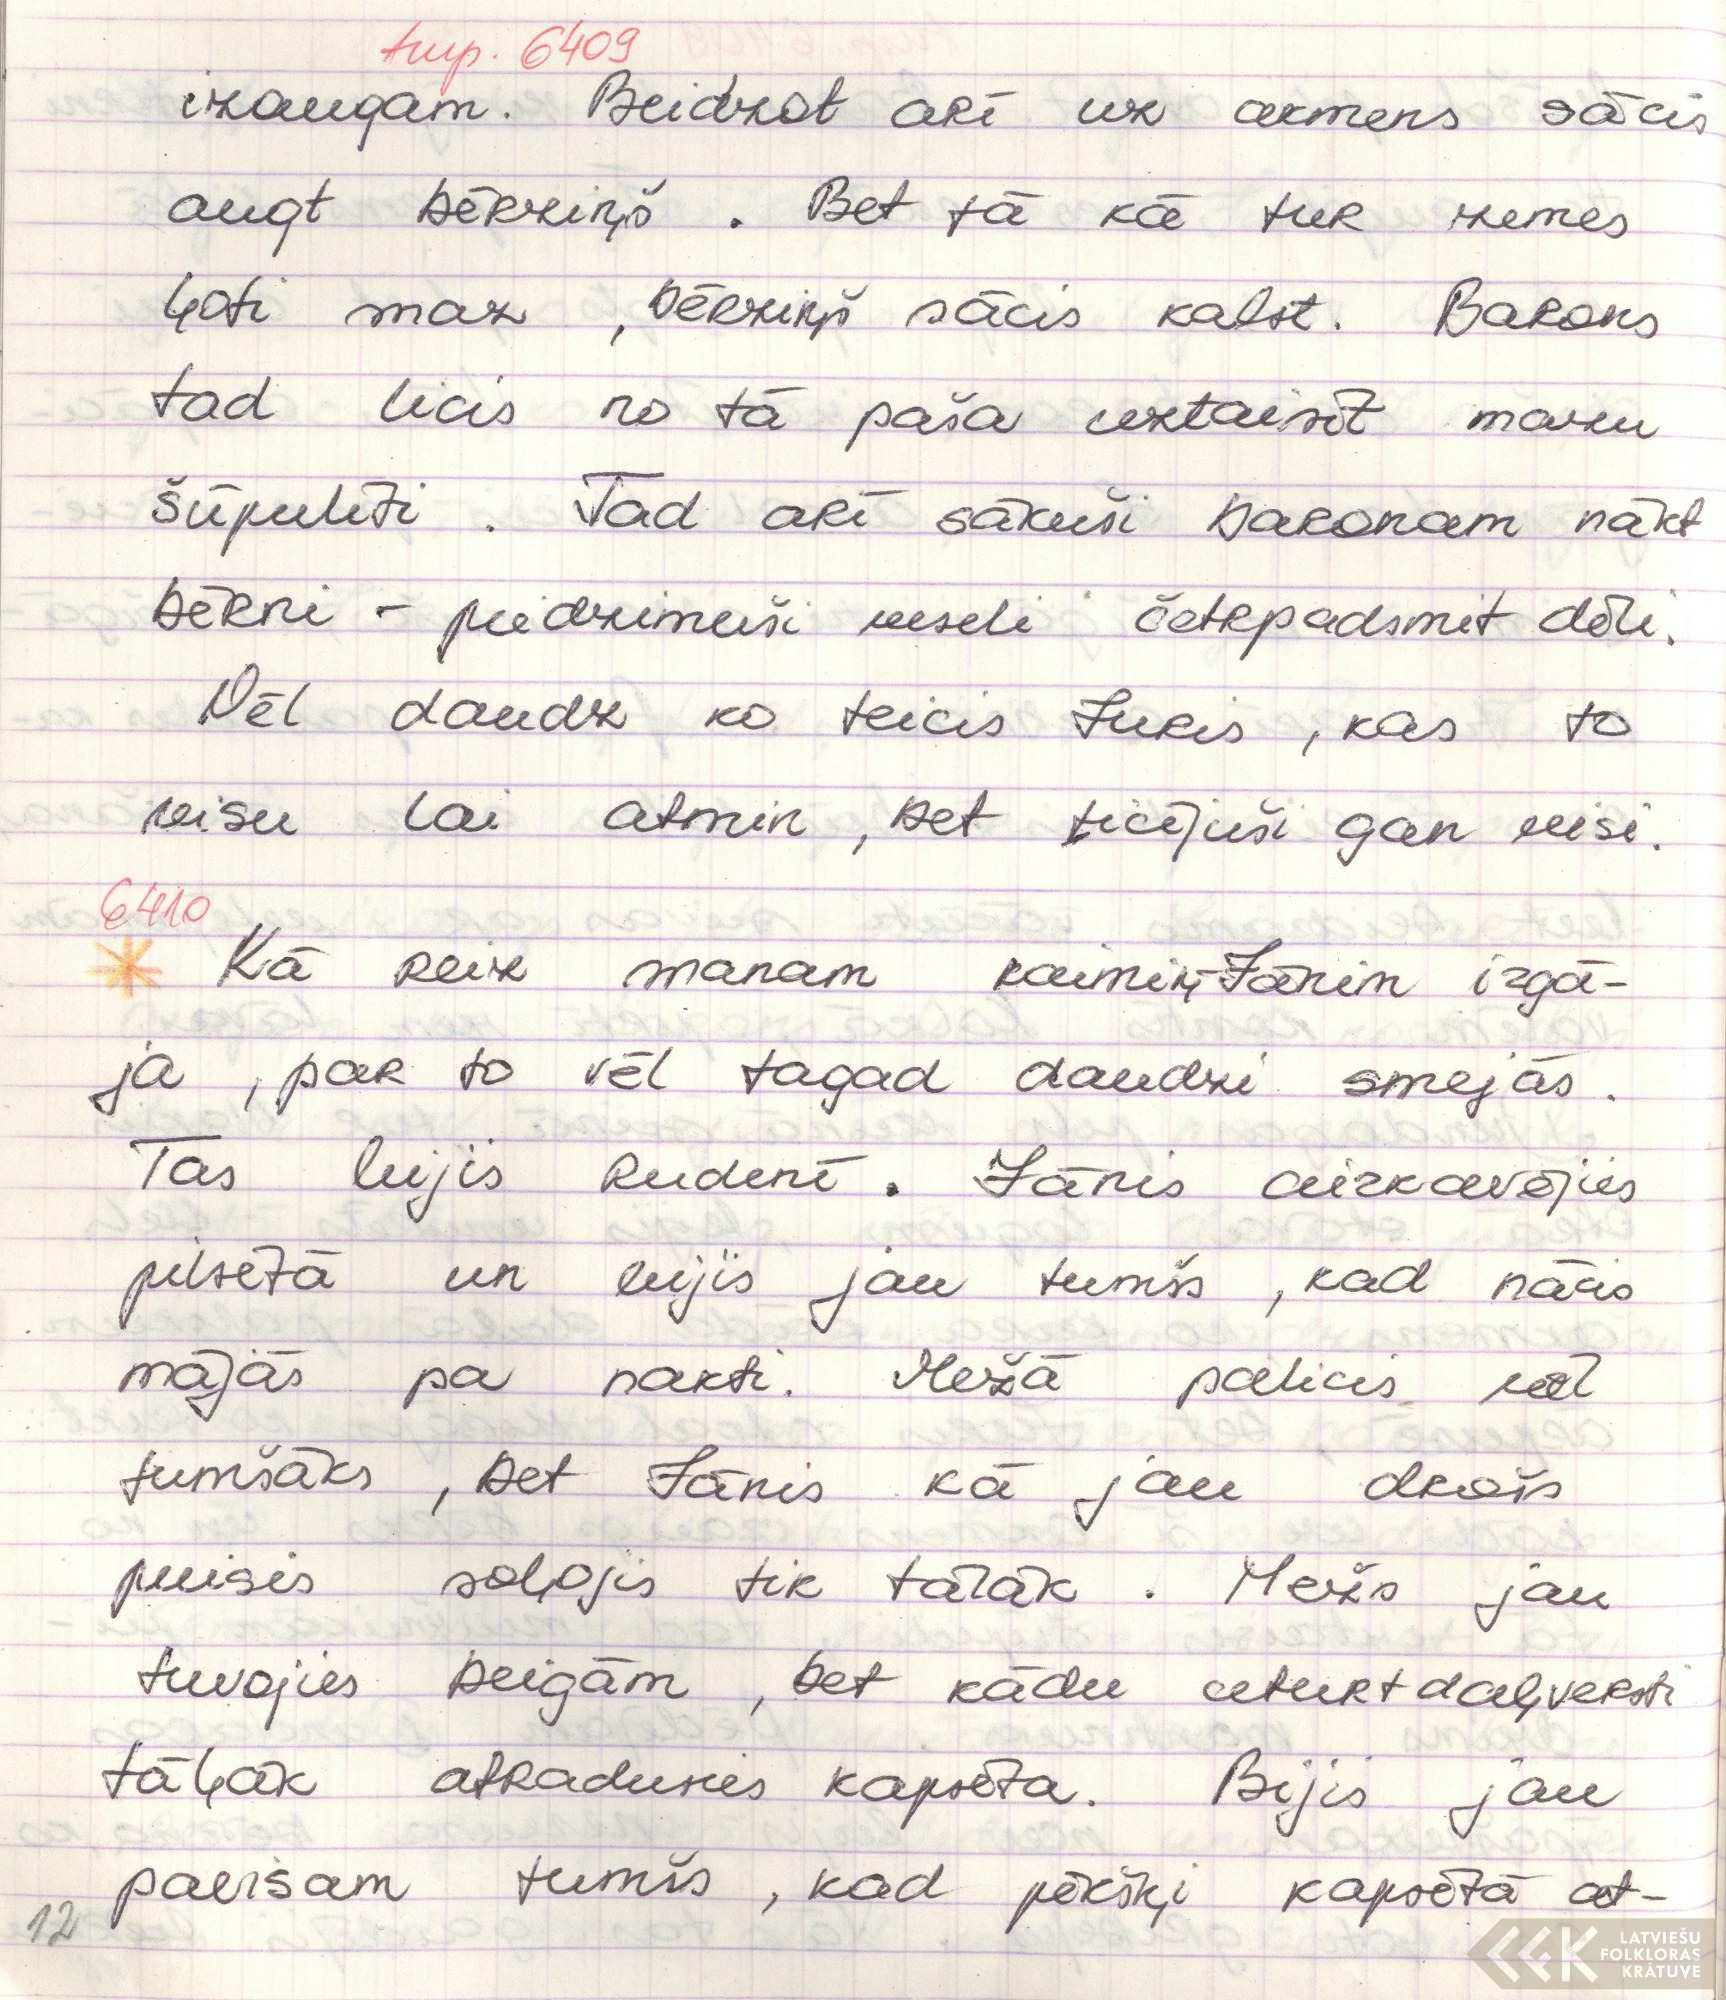 turp. 6409
izaugam. Beidzot arī uz akmens sācis
augt bērziņš. Bet tā kā tur zemes
ļoti maz, bērziņš sācis kalst. Barons
tad licis no tā paša uztaisīt mazu
šūpulīti. Tad arī sākuši baronam nākt
bērni - piedzimuši veseli četrpadsmit dēli.
Vēl daudz ko teicis Juris, kas to
visu lai atmin, bet ticējuši gan visi.
6410
Kā reiz manam kaimiņ Jānim izgā-
ja, par to vēl tagad daudzi smejās.
Tas bijis rudenī. Jānis aizkavējies
pilsētā un bijis jau tumšs, kad nācis
mājās pa nakti. Mežā palicis vēl
tumšāks, bet Jānis kā jau drošs
puisis soļojis tik tālāk. Mežs jau
tuvojies beigām, bet kādu ceturtdaļversti
tāļāk atradusies kapsēta. Bijis jau
pavisam tumšs, kad pēkšņi kapsētā at-
12
LATVIEŠU
FOLKLORAS
KRĀTUVE